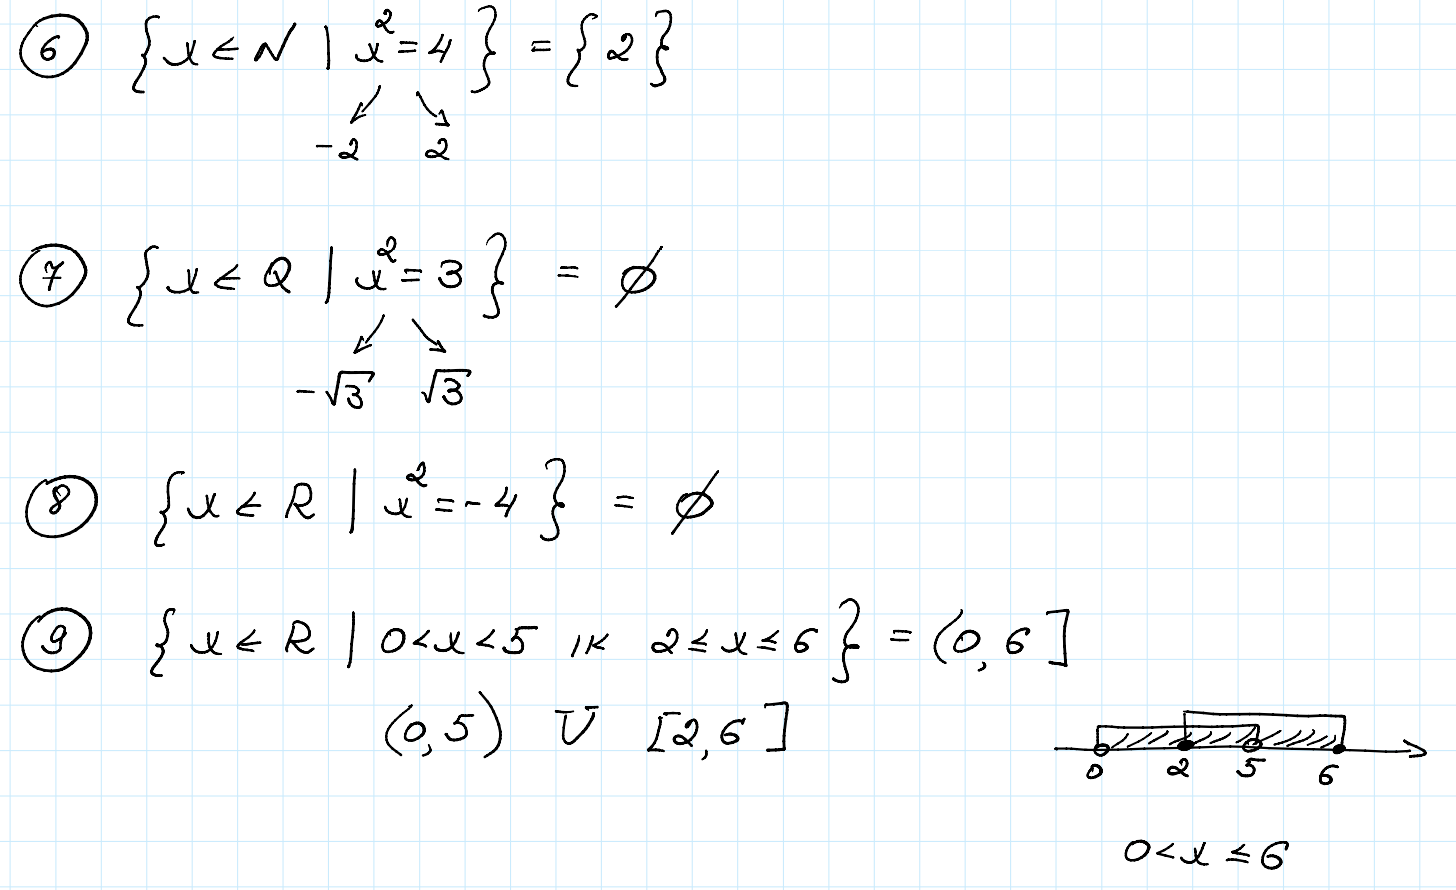 ⑥ {x ∈ N | x² = 4} = {2}
-2 2
⑦ {x ∈ Q | x² = 3} = ∅
-√3 √3
⑧ {x ∈ R | x² = -4} = ∅
⑨ {x ∈ R | 0 < x < 5 או 2 ≤ x ≤ 6} = (0, 6]
(0, 5) ∪ [2, 6]
0 2 5 6
0 < x ≤ 6